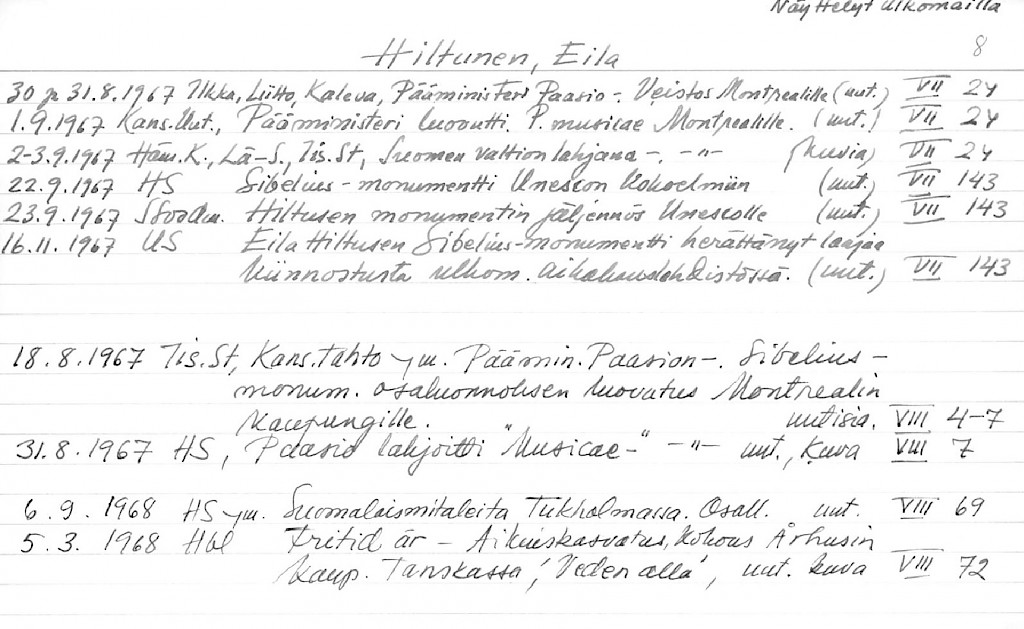 Näyttelyt ulkomailla
8
Hiltunen, Eila
30 ja 31.8.1967 Ilkka, Liitto, Kaleva, Pääministeri Paasio -. Veistos Montrealille (uut.) VII 24
1.9.1967 Kans.Uut., Pääministeri luovutti. P. musicae Montrealille. (uut.) VII 24
2-3.9.1967 Häm.K., Lä-S., Tis.St, Suomen valtion lahjana -. -"- (kuvia) VII 24
22.9.1967 HS Sibelius-monumentti Unescon kokoelmiin (uut.) VII 143
23.9.1967 Hiltusen monumentin jäljennös Unescolle (uut.) VII 143
16.11.1967 US Eila Hiltusen Sibelius-monumentti herättänyt laajaa
kiinnostusta ulkom. aikakauslehdistössä. (uut.) VII 143
18.8.1967 Tis.St, Kans.tahto ym. Päämin. Paasion -. Sibelius-
monum. osaluonnoksen luovatus Montrealin
kaupungille. " uutisia. VIII 4-7
31.8.1967 HS, Paasio lahjoitti "Musicae-" -"- uut., kuva VIII 7
6.9.1968 HS ym. Suomalaismitaleita Tukholmassa. Osall. uut. VIII 69
5.3.1968 Hbl Fritid är - Aikuiskasvatus, kokous Århusin
kaup. Tanskassa, 'Veden alla', uut. kuva VIII 72